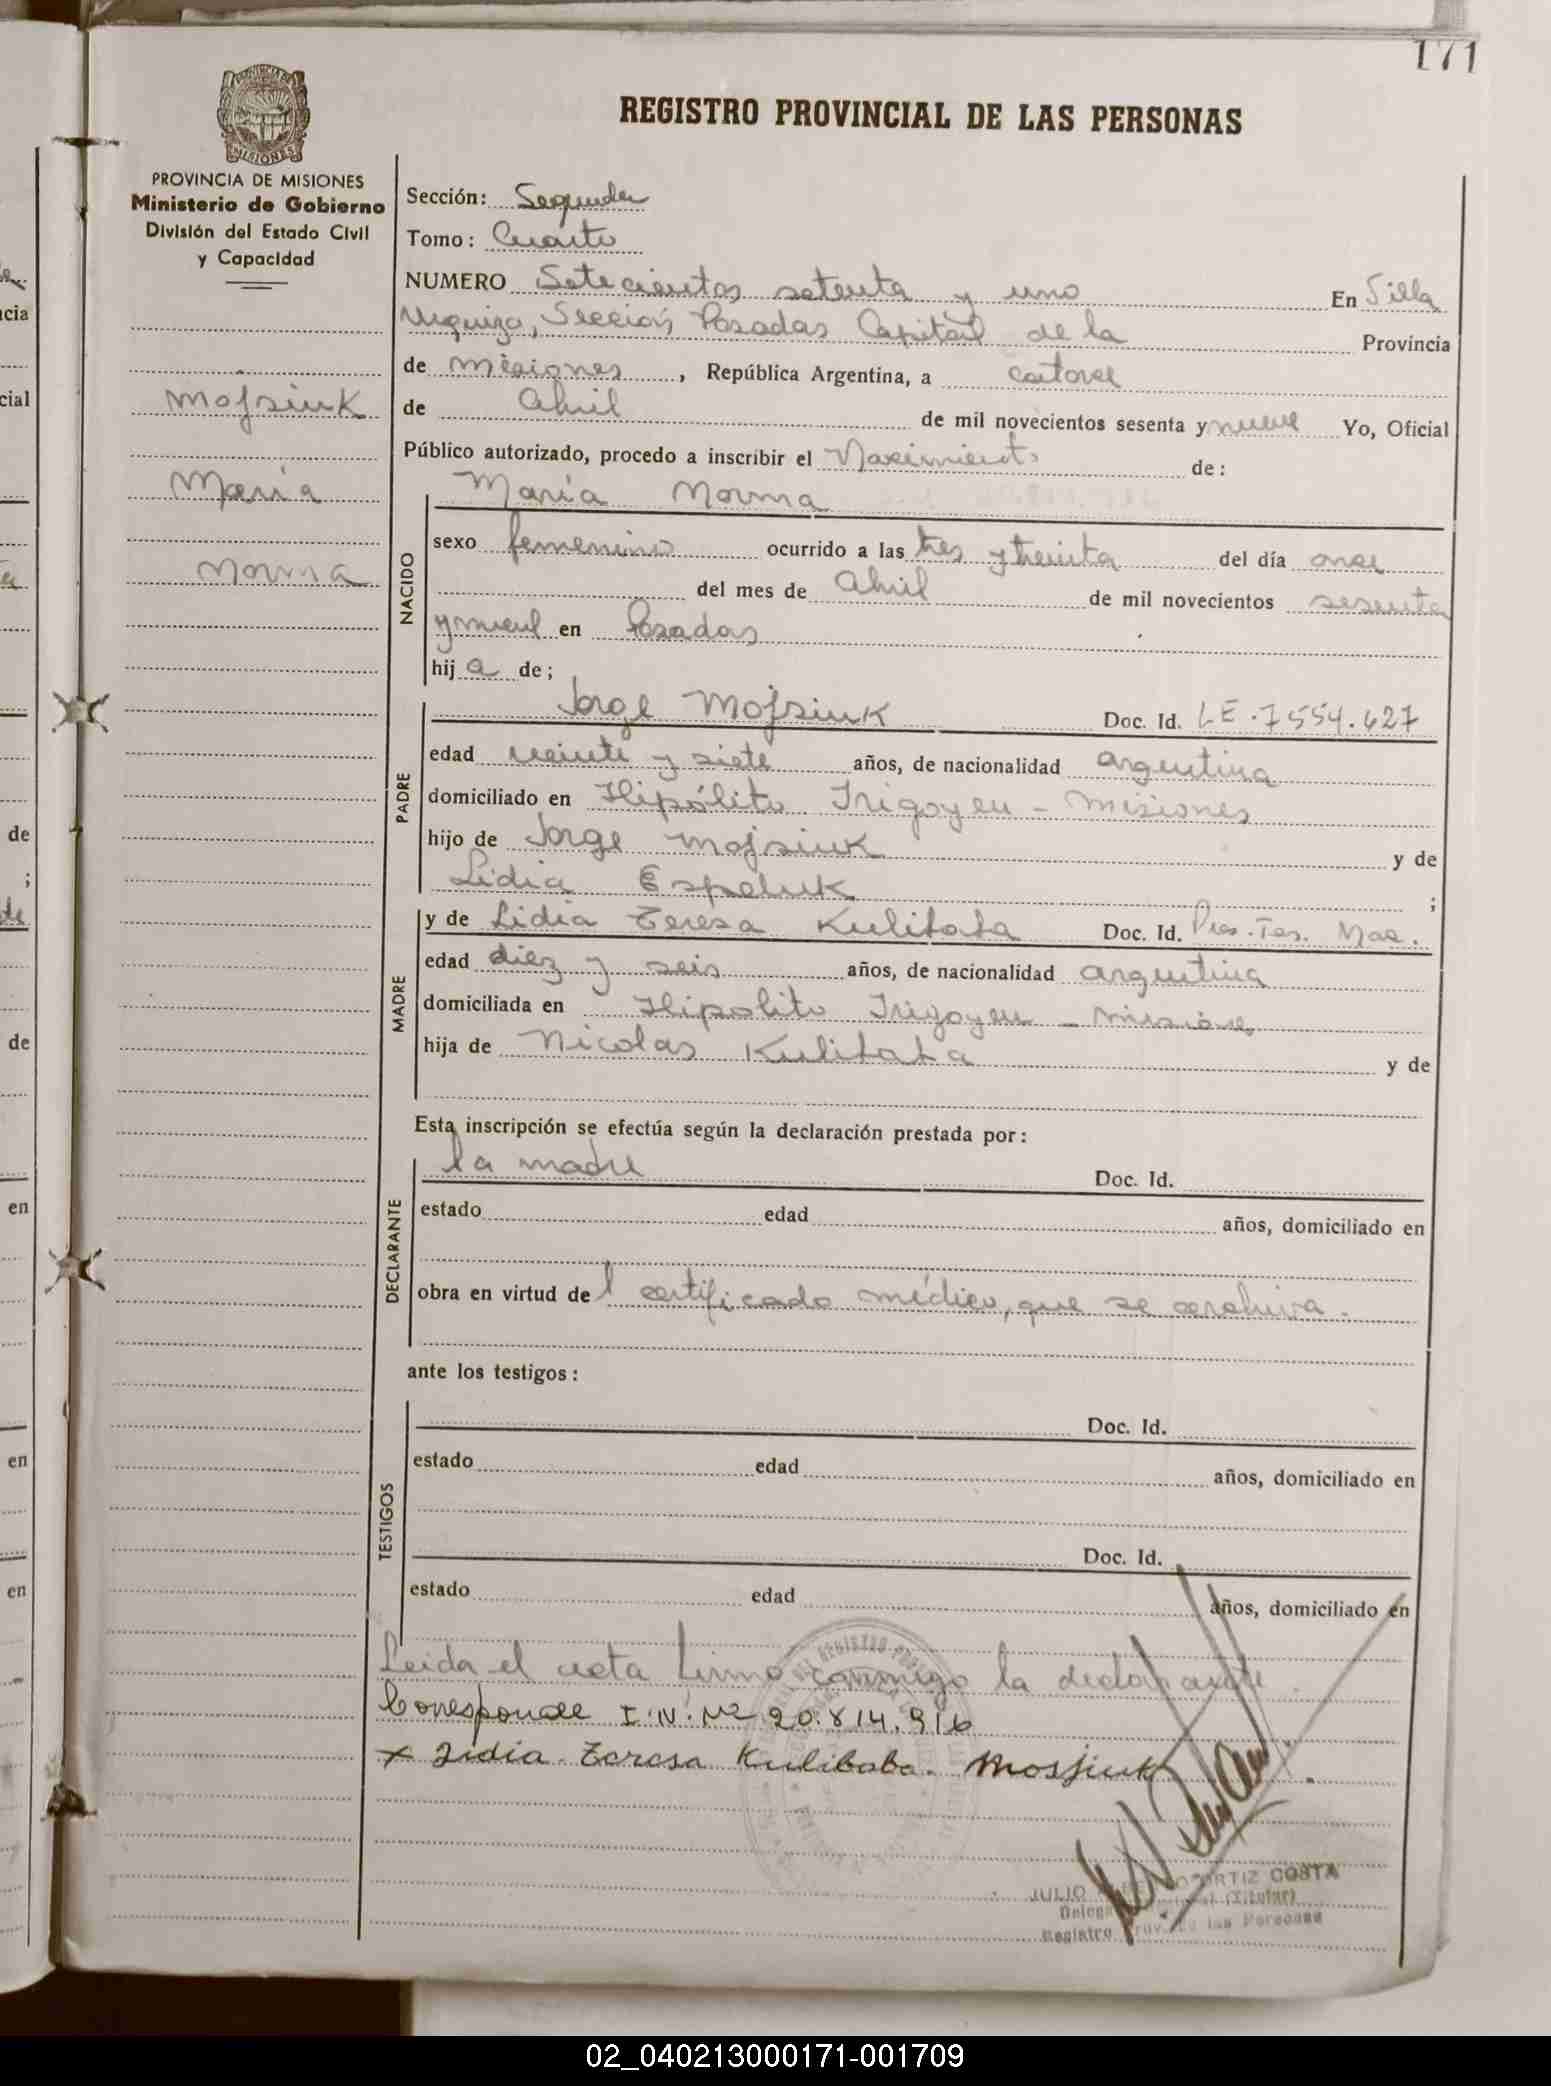 171
PROVINCIA DE
MISIONES
REGISTRO PROVINCIAL DE LAS PERSONAS
PROVINCIA DE MISIONES
Ministerio de Gobierno
División del Estado Civil
y Capacidad
Mojsiuk
María
Norma
Sección: Segunda
Tomo: Cuarto
NUMERO Setecientos setenta y uno En Villa
Urquiza, Sección Posadas Capital de la Provincia
de Misiones, República Argentina, a catorce
de Abril de mil novecientos sesenta y nueve Yo, Oficial
Público autorizado, procedo a inscribir el Nacimiento de:
María Norma
NACIDO
sexo femenino ocurrido a las tres y treinta del día once
del mes de Abril de mil novecientos sesenta
y nueve en Posadas
hija de;
PADRE
Jorge Mojsiuk Doc. Id. LE.7554.627
edad veinte y siete años, de nacionalidad argentina
domiciliado en Hipólito Irigoyen - Misiones
hijo de Jorge Mojsiuk y de
Lidia Espeluk ;
MADRE
y de Lidia Teresa Kulibaba Doc. Id.
edad diez y seis años, de nacionalidad argentina
domiciliada en Hipolito Irigoyen - Misiones
hija de Nicolas Kulibaba y de
Esta inscripción se efectúa según la declaración prestada por:
DECLARANTE
la madre Doc. Id.
estado edad años, domiciliado en
obra en virtud del certificado médico, que se archiva.
ante los testigos:
TESTIGOS
Doc. Id.
estado edad años, domiciliado en
Doc. Id.
estado edad años, domiciliado en
Leída el acta firma conmigo la declarante.
Corresponde I.N. Nº 20.814.916
x Lidia Teresa Kulibaba. Mosjiuk
JULIO ORTIZ COSTA
(Titular)
Registro las Personas
de
de
en
en
en
02_040213000171-001709